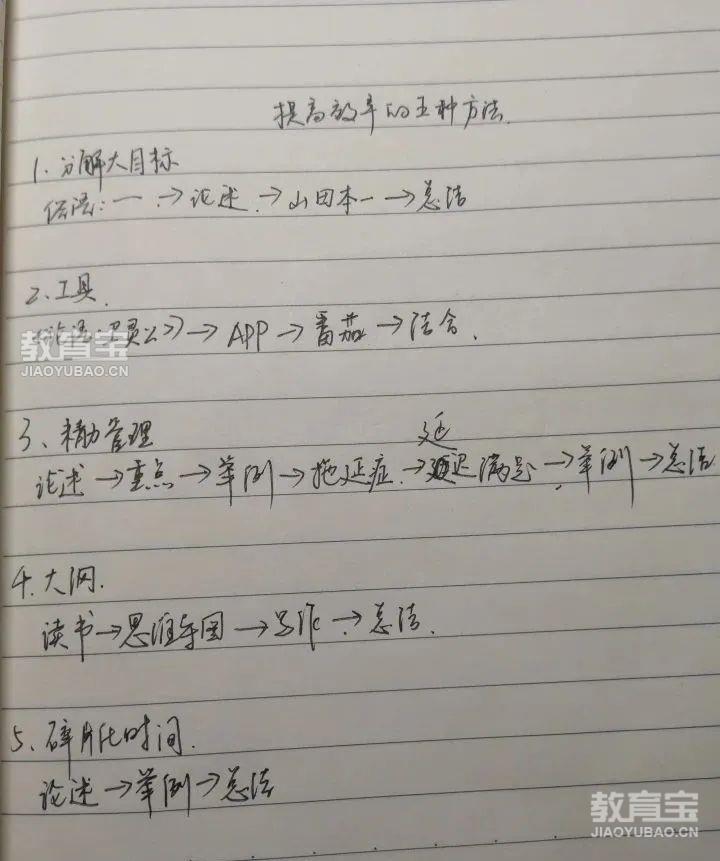 提高效率的五种方法.
1、分解大目标
俗语:一 → 论述 → 山田本一 → 总结
2、工具.
《论语·卫灵公》→ APP → 番茄 → 结合.
3、精力管理
延
论述 → 重点 → 举例 → 拖延症 → 迟满足 → 举例 → 总结
4、大纲.
读书 → 思维导图 → 写作 → 总结.
5、碎片化时间.
论述 → 举例 → 总结
教育宝
JIAOYUBAO.CN
教育宝
JIAOYUBAO.CN